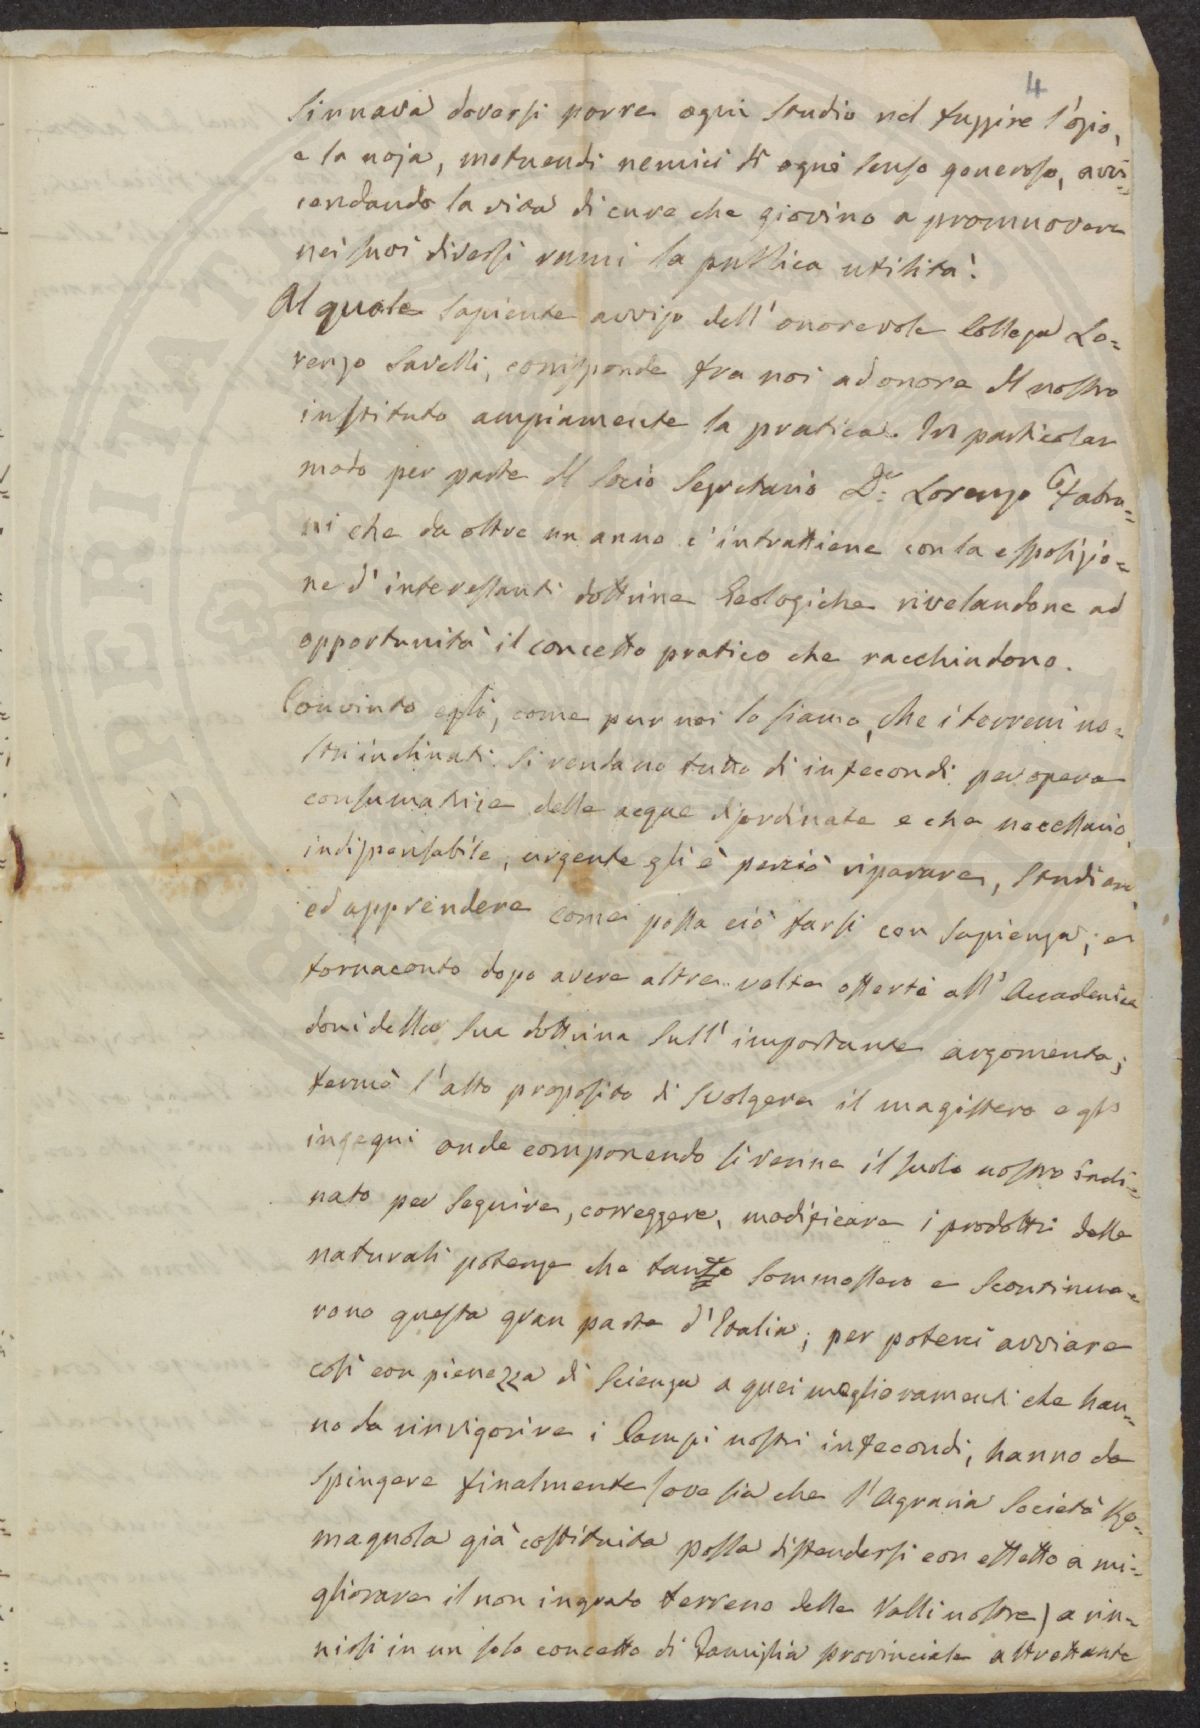 4
sinnava doversi porre ogni studio nel fuggire l'ozio,
e la noja, metuendi nemici di ogni senso generoso, avvi=
cendando la vita di cure che giovino a promuovere
nei suoi diversi rami la publica utilità.
Al quale sapiente avviso dell'onorevole Collega Lo=
renzo Savelli, corrisponde fra noi ad onore del nostro
instituto ampiamente la pratica. In particolar
modo per parte del Socio Segretario Dr. Lorenzo Fabra=
ni che da oltre un anno c'intrattiene con la esposizio=
ne d'interessanti dottrine Geologiche rivelandone ad
opportunità il concetto pratico che racchiudono.
Convinto egli, come pur noi lo siamo, che i terreni no=
stri inclinati si rendano tutto dì infecondi per opera
consumatrice delle acque disordinate e che necessario,
indispensabile, urgente gli è perciò riparare, studiare,
ed apprendere come possa ciò farsi con sapienza, e
tornaconto dopo avere altre volte offerte all'Accademia
doni della sua dottrina sull'importante argomento;
fermò l'alto proposito di svolgere il magistero e gl'
ingegni onde componendo si venne il suolo nostro incli=
nato per seguire, correggere, modificare i prodotti delle
naturali potenze che tanto sommossero e scontinua=
rono questa gran parte d'Italia; per poterci avviare
così con pienezza di Scienza a quei miglioramenti che han=
no da rinvigorire i Campi nostri infecondi, hanno da
spingere finalmente (ove sia che l'Agraria Società Ro=
magnola già costituita possa distendersi con effetto a mi=
gliorare il non ingrato terreno delle Valli nostre) a riu=
nirsi in un solo concetto di famiglia provinciale altrettante